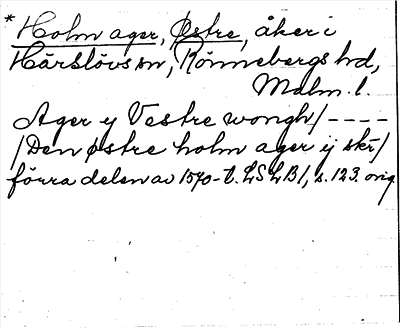 * Holm ager, Østre, åker i
Härslövs sn, Rönnebergs hd,
Malm. l.
Ager y Vestre wongh /----
/ Den østre holm ager ij skr /
förra delen av 1570-t. LSLB1, s. 123. orig.